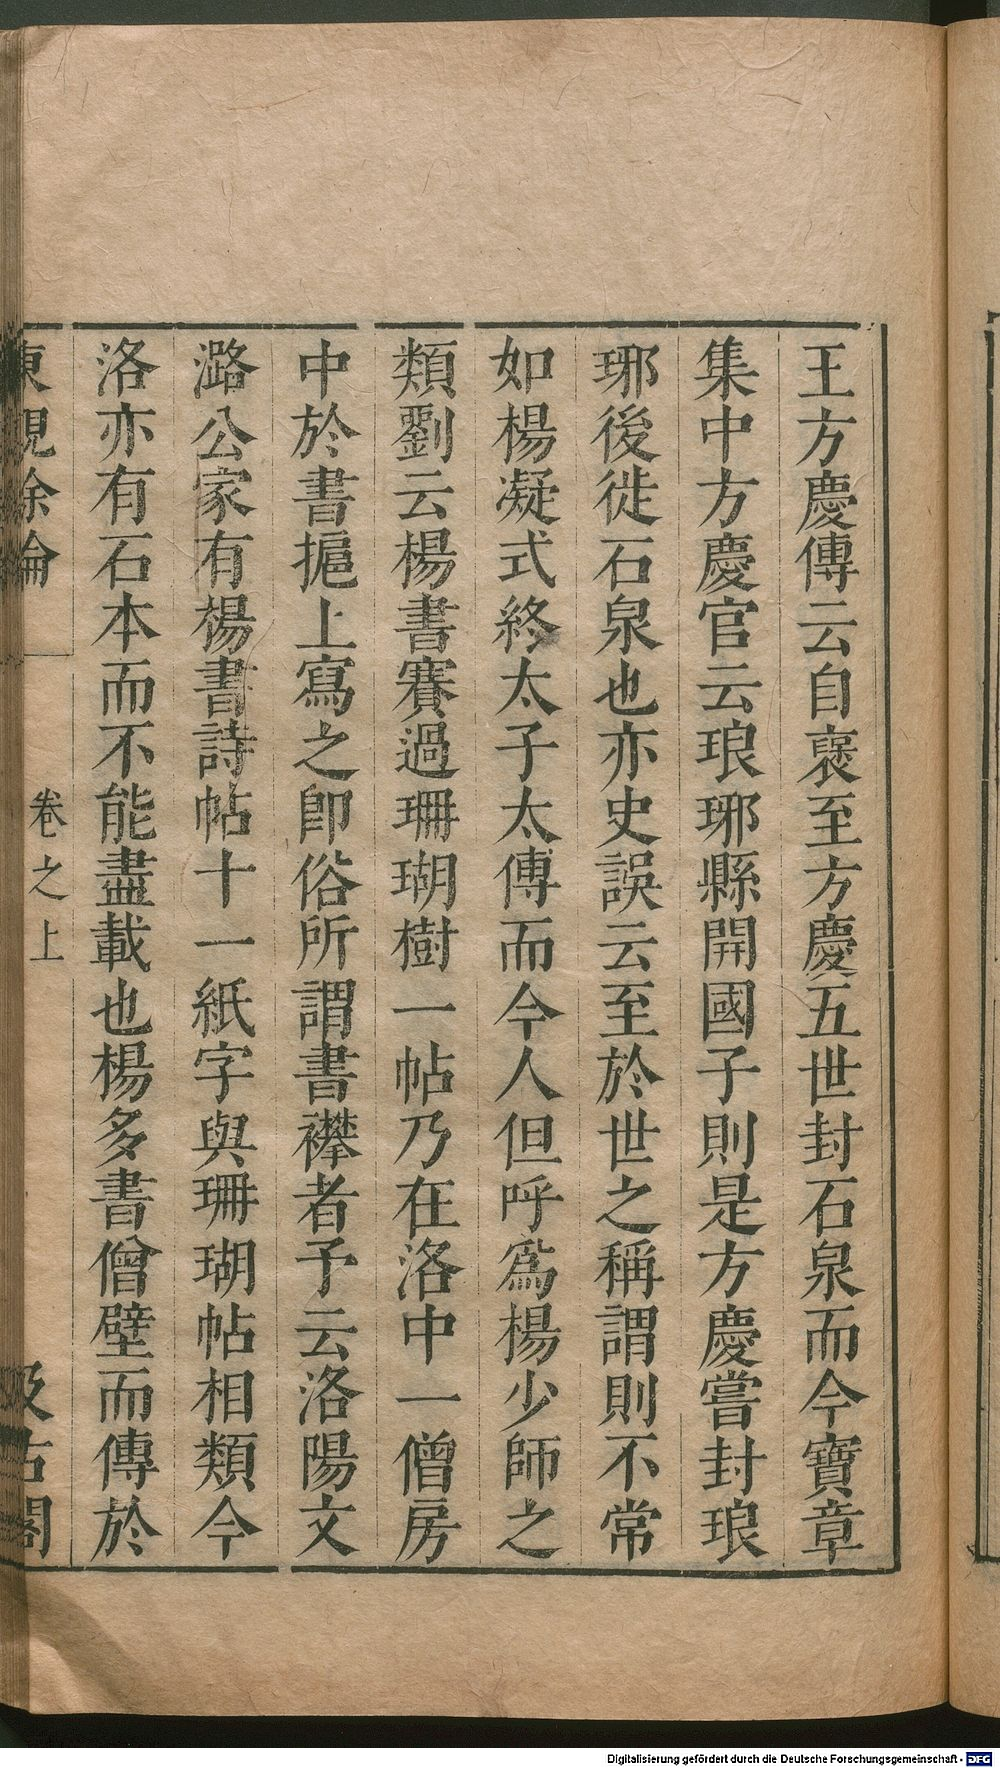 王方慶傳云自褒至方慶五世封石泉而今寶章
集中方慶官云琅琊縣開國子則是方慶嘗封琅
琊後徙石泉也亦史誤云至於世之稱謂則不常
如楊凝式終太子太傅而今人但呼爲楊少師之
類劉云楊書賽過珊瑚樹一帖乃在洛中一僧房
中於書摭上寫之卽俗所謂書襻者予云洛陽文
潞公家有楊書詩帖十一紙字與珊瑚帖相類今
洛亦有石本而不能盡載也楊多書僧壁而傳於
東觀余論
卷之上
汲古閣
Digitalisierung gefördert durch die Deutsche Forschungsgemeinschaft - DFG